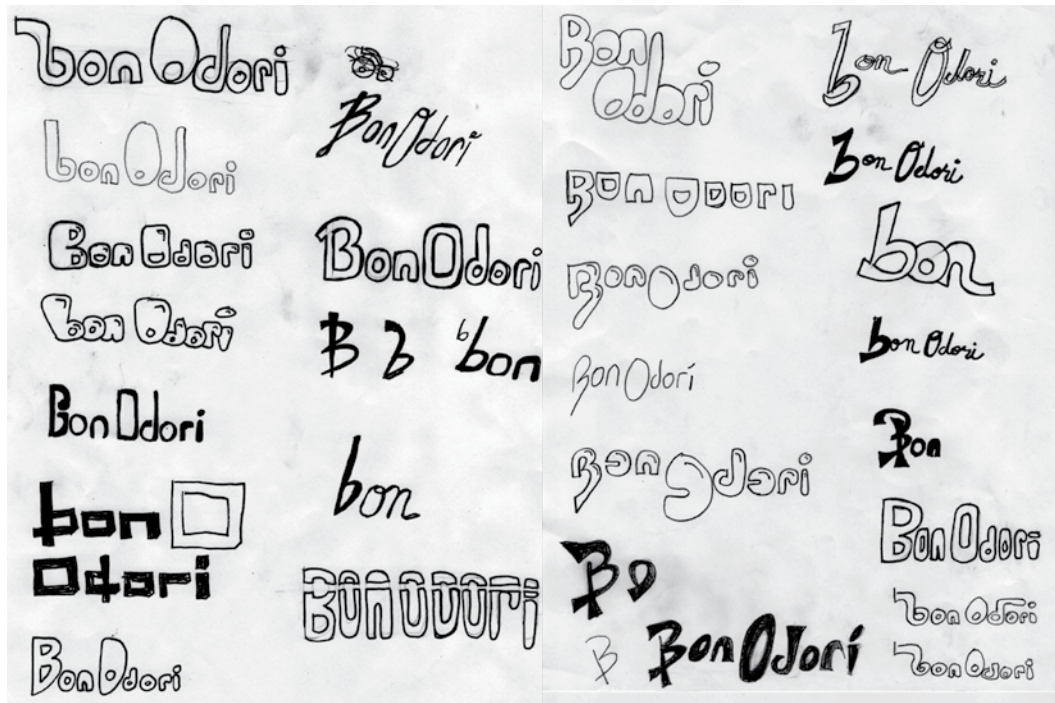 bon Odori
bon Odori
Bon Odori
bon Odori
Bon Odori
bon
Odori
Bon Odori
Bon Odori
Bon Odori
B b bbon
bon
BON ODORI
Bon
Odori
Bon ODORI
Bon Odori
Bon Odori
Bon Odori
B
B Bon Odori
bon Odori
bon Odori
bon
bon Odori
Bon
Bon Odori
bon Odori
bon Odori